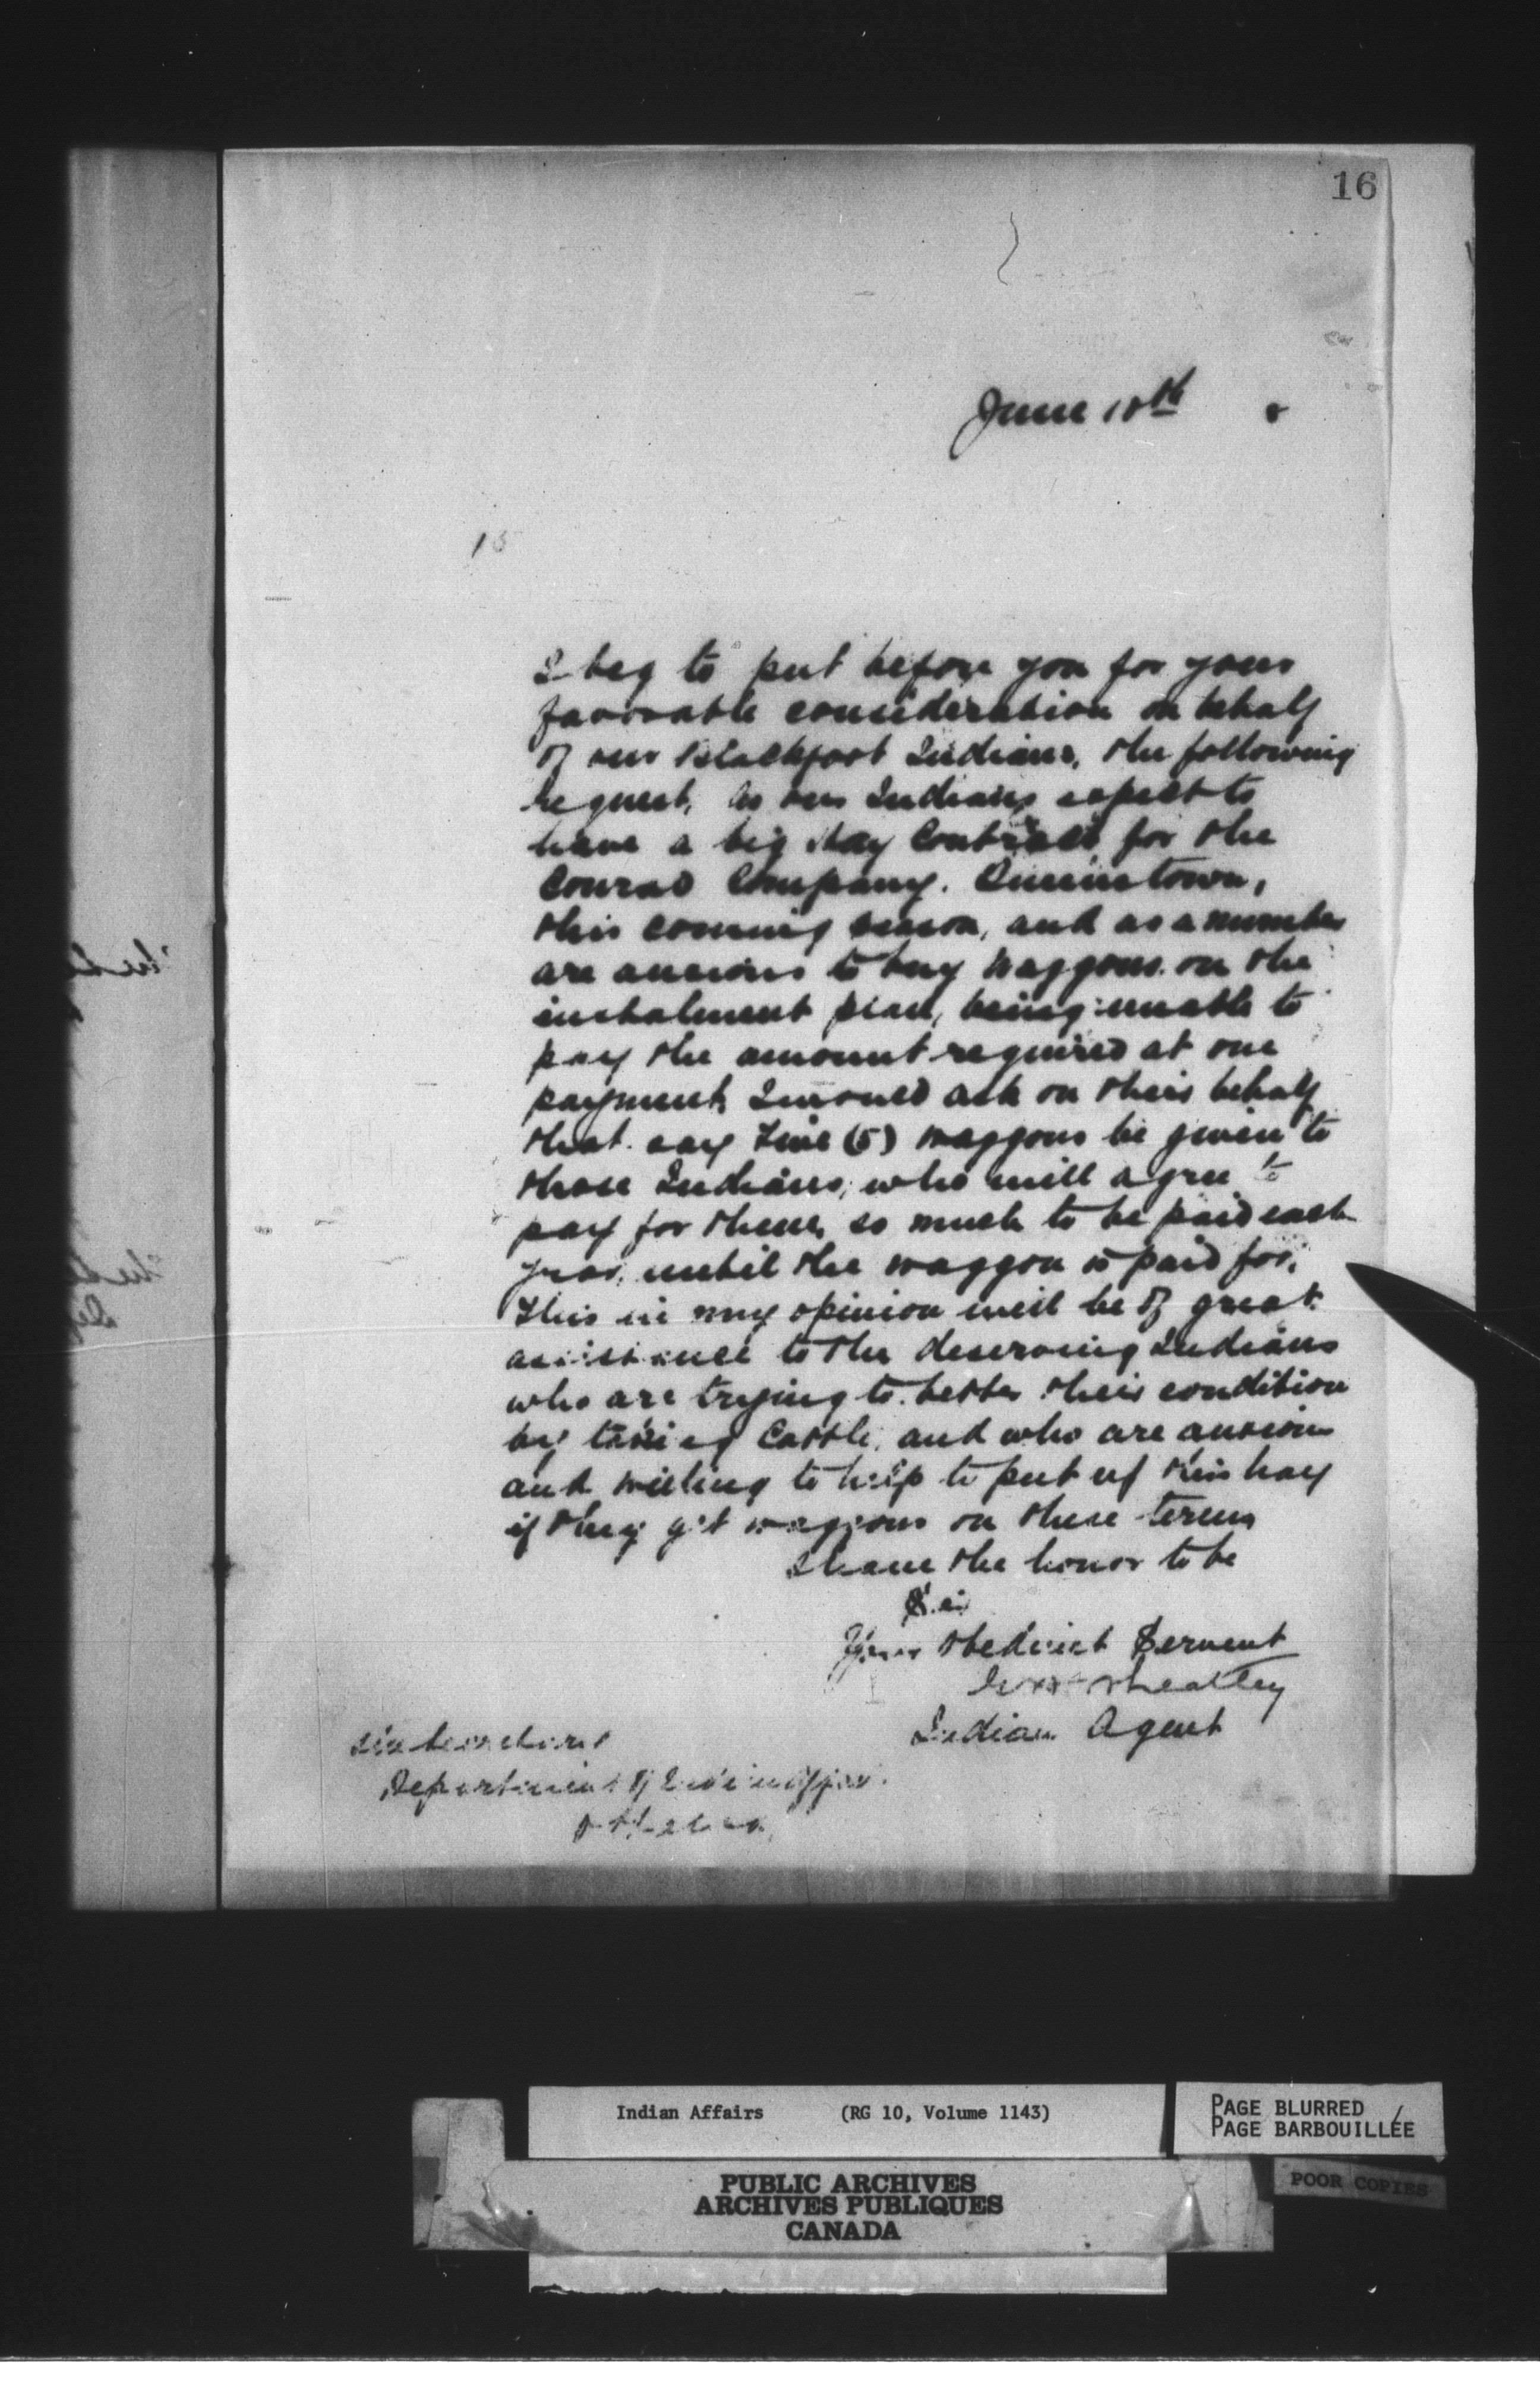 16
June 10th
15
I beg to put before you for your
favorable consideration on behalf
of our Blackfoot Indians, the following
request. As our Indians expect to
have a big Hay Contract for the
Conrad Company. Queenstown,
this coming season, and as a number
are anxious to buy Waggons on the
instalment plan, being unable to
pay the amount required at one
payment, I would ask on their behalf
that say Five (5) waggons be given to
those Indians, who will agree to
pay for them, so much to be paid each
year, until the waggon is paid for.
This in my opinion will be of great
assistance to the deserving Indians
who are trying to better their condition
by taking Cattle, and who are anxious
and willing to help to put up this hay
if they get waggons on these terms
I have the honor to be
Sir
Your Obedient Servant
Wheatley
Indian Agent
Department of Indian Affairs.
Ottawa
Indian Affairs (RG 10, Volume 1143)
PAGE BLURRED
PAGE BARBOUILLÉE
POOR COPIES
PUBLIC ARCHIVES
ARCHIVES PUBLIQUES
CANADA